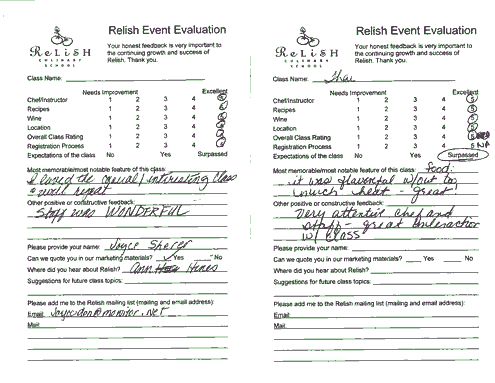 RELISH
CULINARY
SCHOOL
Relish Event Evaluation
Your honest feedback is very important to
the continuing growth and success of
Relish. Thank you.
Class Name:
Needs Improvement Excellent
Chef/Instructor 1 2 3 4 5
Recipes 1 2 3 4 5
Wine 1 2 3 4 5
Location 1 2 3 4 5
Overall Class Rating 1 2 3 4 5
Registration Process 1 2 3 4 5
Expectations of the class No Yes Surpassed
Most memorable/most notable feature of this class:
I loved the casual/interesting class
& will repeat
Other positive or constructive feedback:
Staff was WONDERFUL
Please provide your name: Joyce
Can we quote you in our marketing materials? ✓ Yes No
Where did you hear about Relish? Ann Hines
Suggestions for future class topics:
Please add me to the Relish mailing list (mailing and email address):
Email:
Mail:
RELISH
CULINARY
SCHOOL
Relish Event Evaluation
Your honest feedback is very important to
the continuing growth and success of
Relish. Thank you.
Class Name: Thai
Needs Improvement Excellent
Chef/Instructor 1 2 3 4 5
Recipes 1 2 3 4 5
Wine 1 2 3 4 5
Location 1 2 3 4 5
Overall Class Rating 1 2 3 4 5
Registration Process 1 2 3 4 5 NA
Expectations of the class No Yes Surpassed
Most memorable/most notable feature of this class: food:
it was flavorful w/out too
much heat - great!
Other positive or constructive feedback:
Very attentive chef and
staff - great interaction
w/ class
Please provide your name:
Can we quote you in our marketing materials? Yes No
Where did you hear about Relish?
Suggestions for future class topics:
Please add me to the Relish mailing list (mailing and email address):
Email:
Mail: